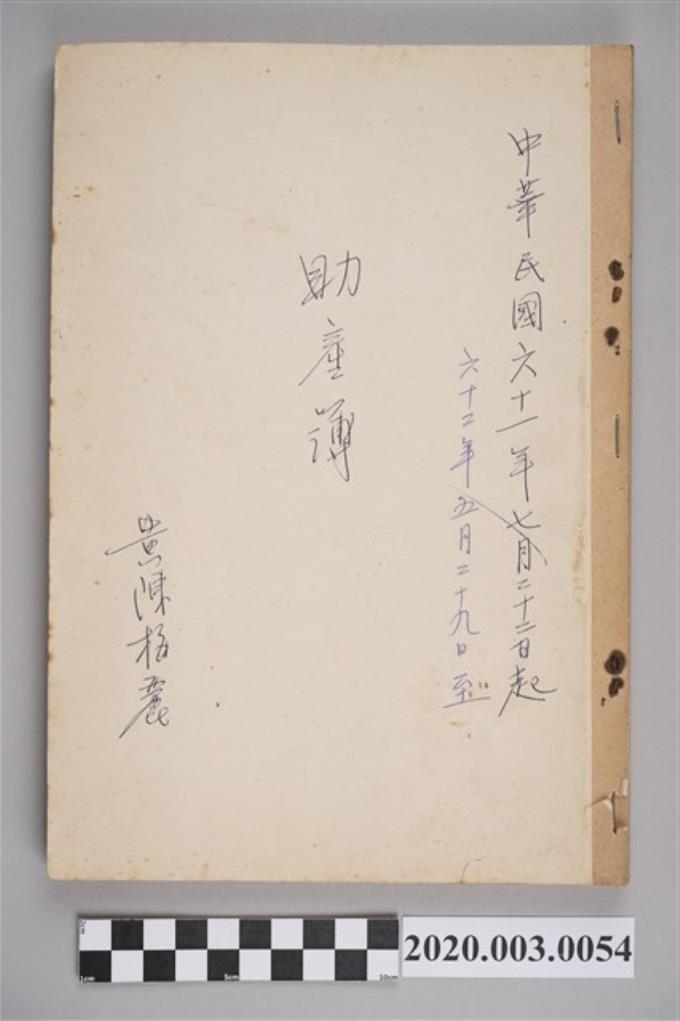 中華民國六十一年七月二十二日起
六十二年五月二十九日至
助產簿
黃陳梅麗
1cm 5cm 10cm
2020.003.0054